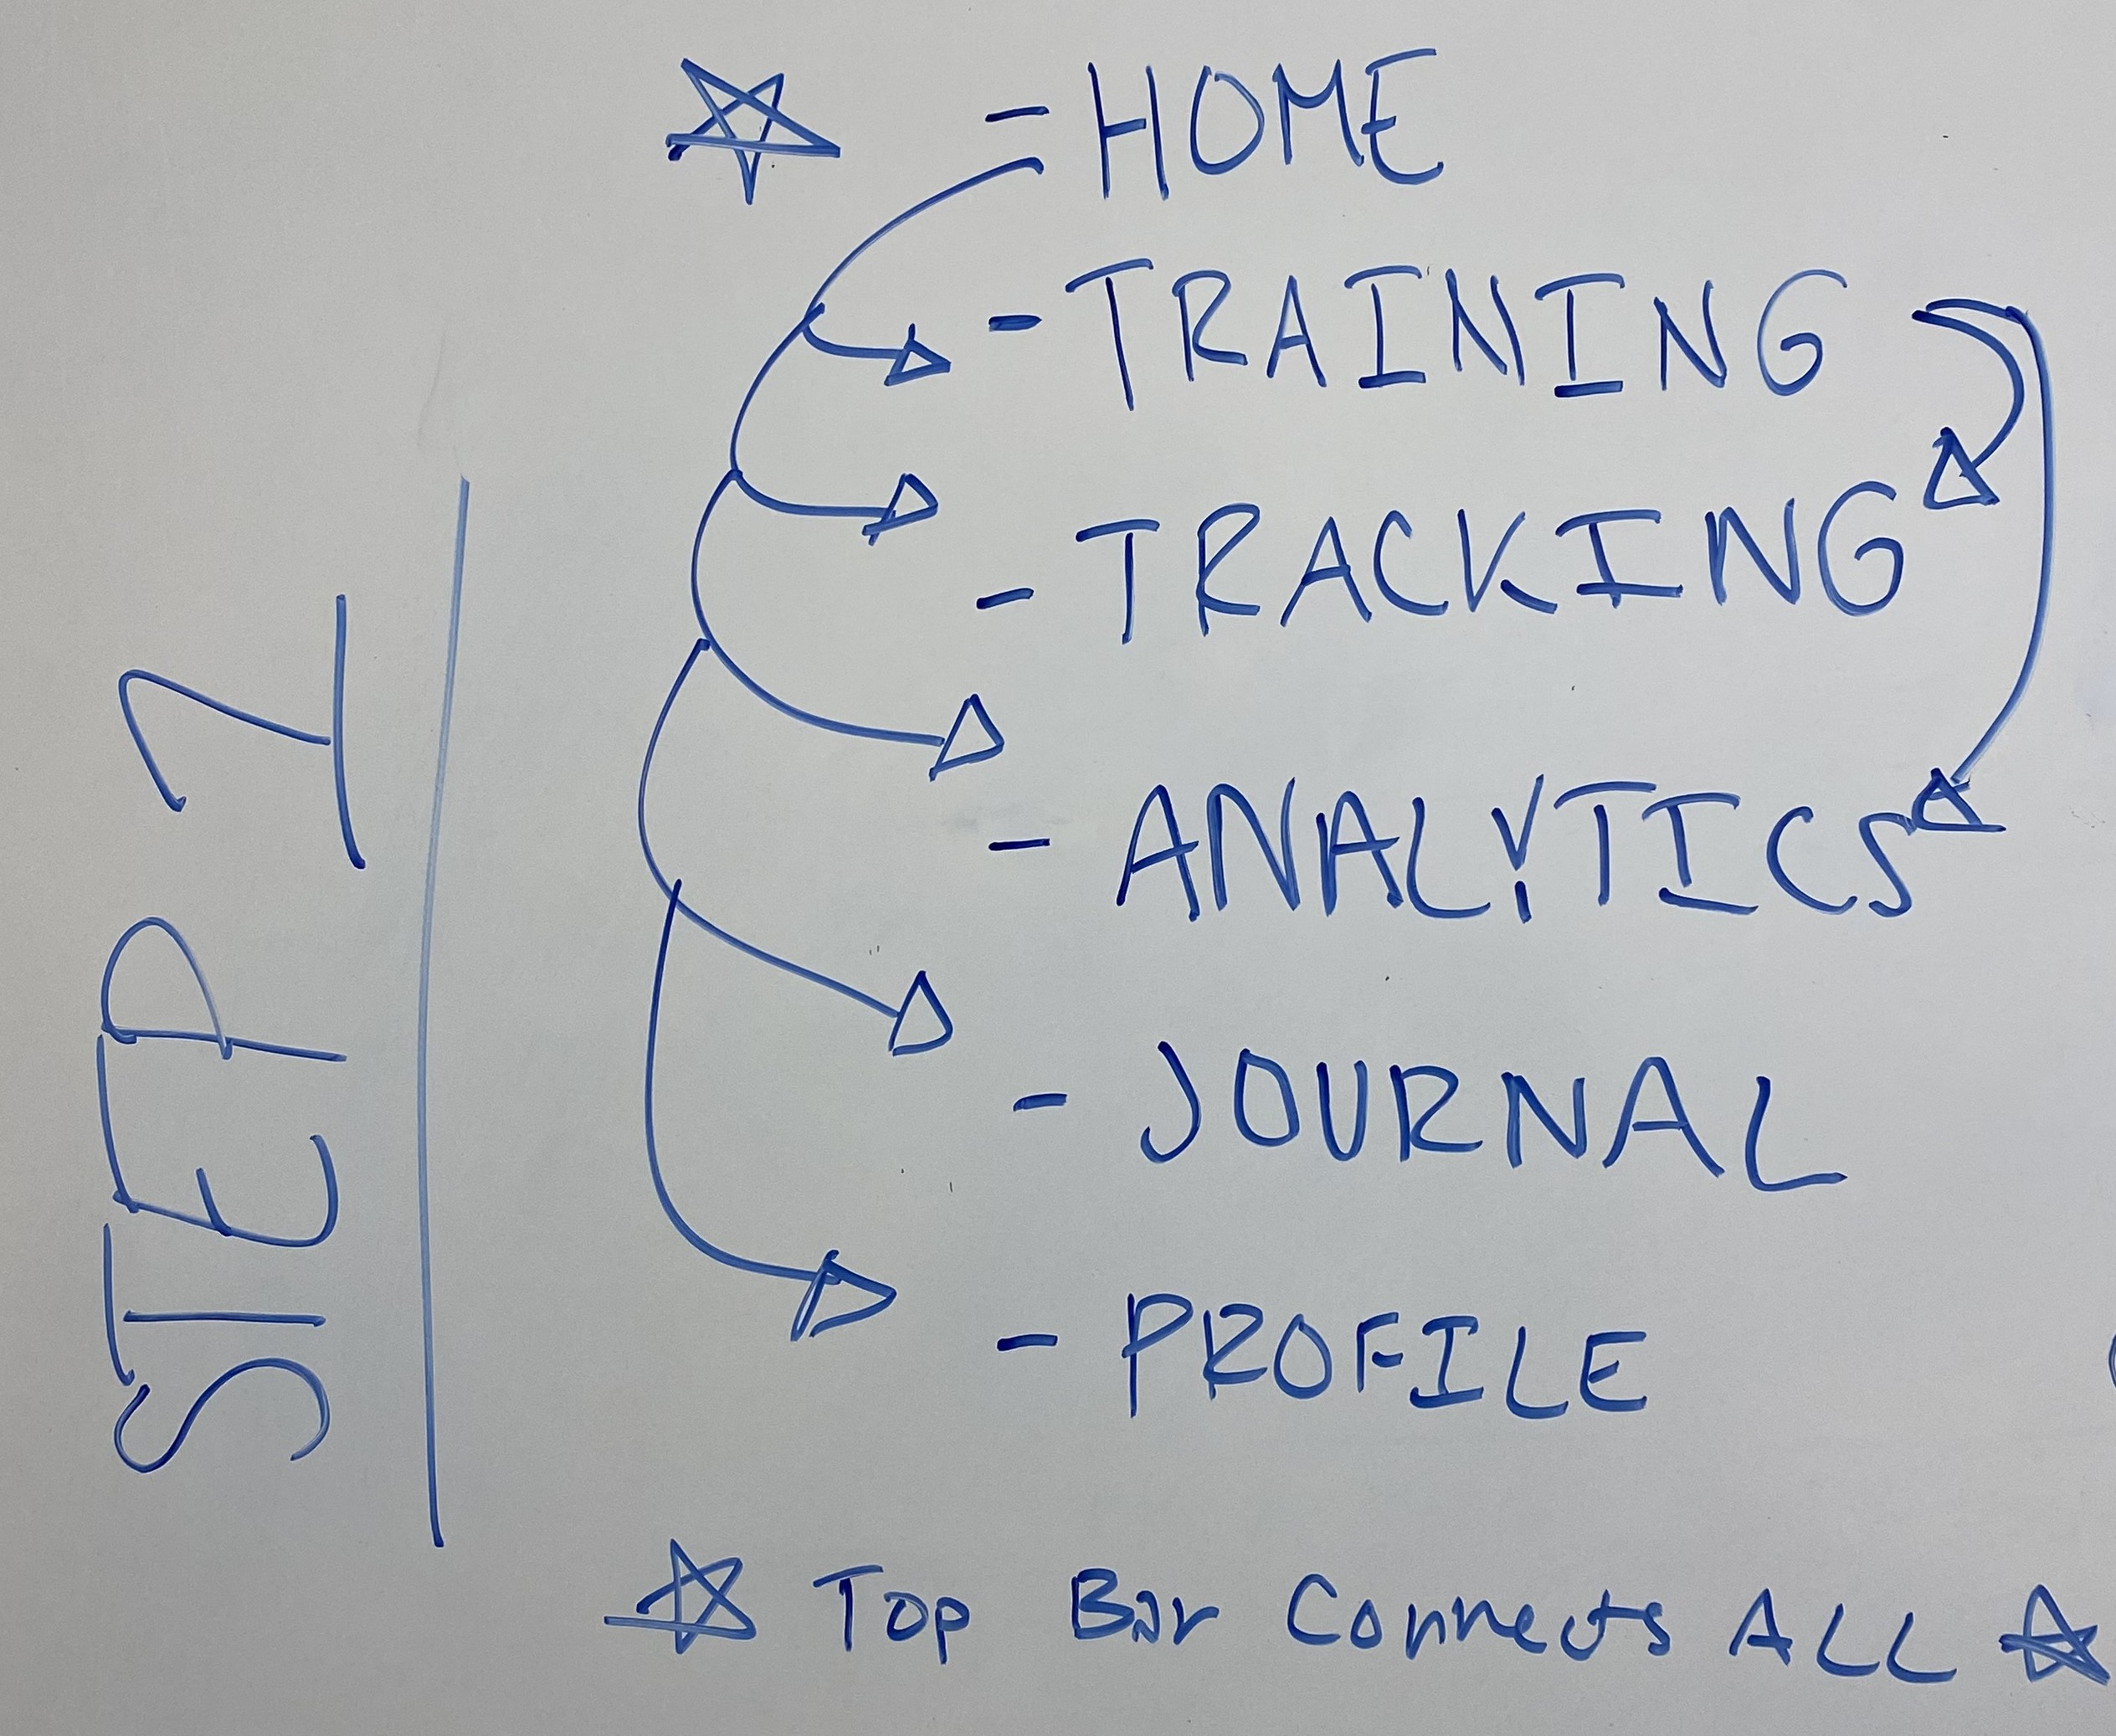 STEP 1
- HOME
- TRAINING
- TRACKING
- ANALYTICS
- JOURNAL
- PROFILE
Top Bar Connects ALL